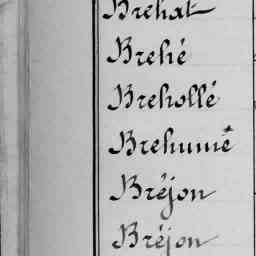 Brehat
Brehé
Brehollé
Brehumé
Bréjon
Bréjon